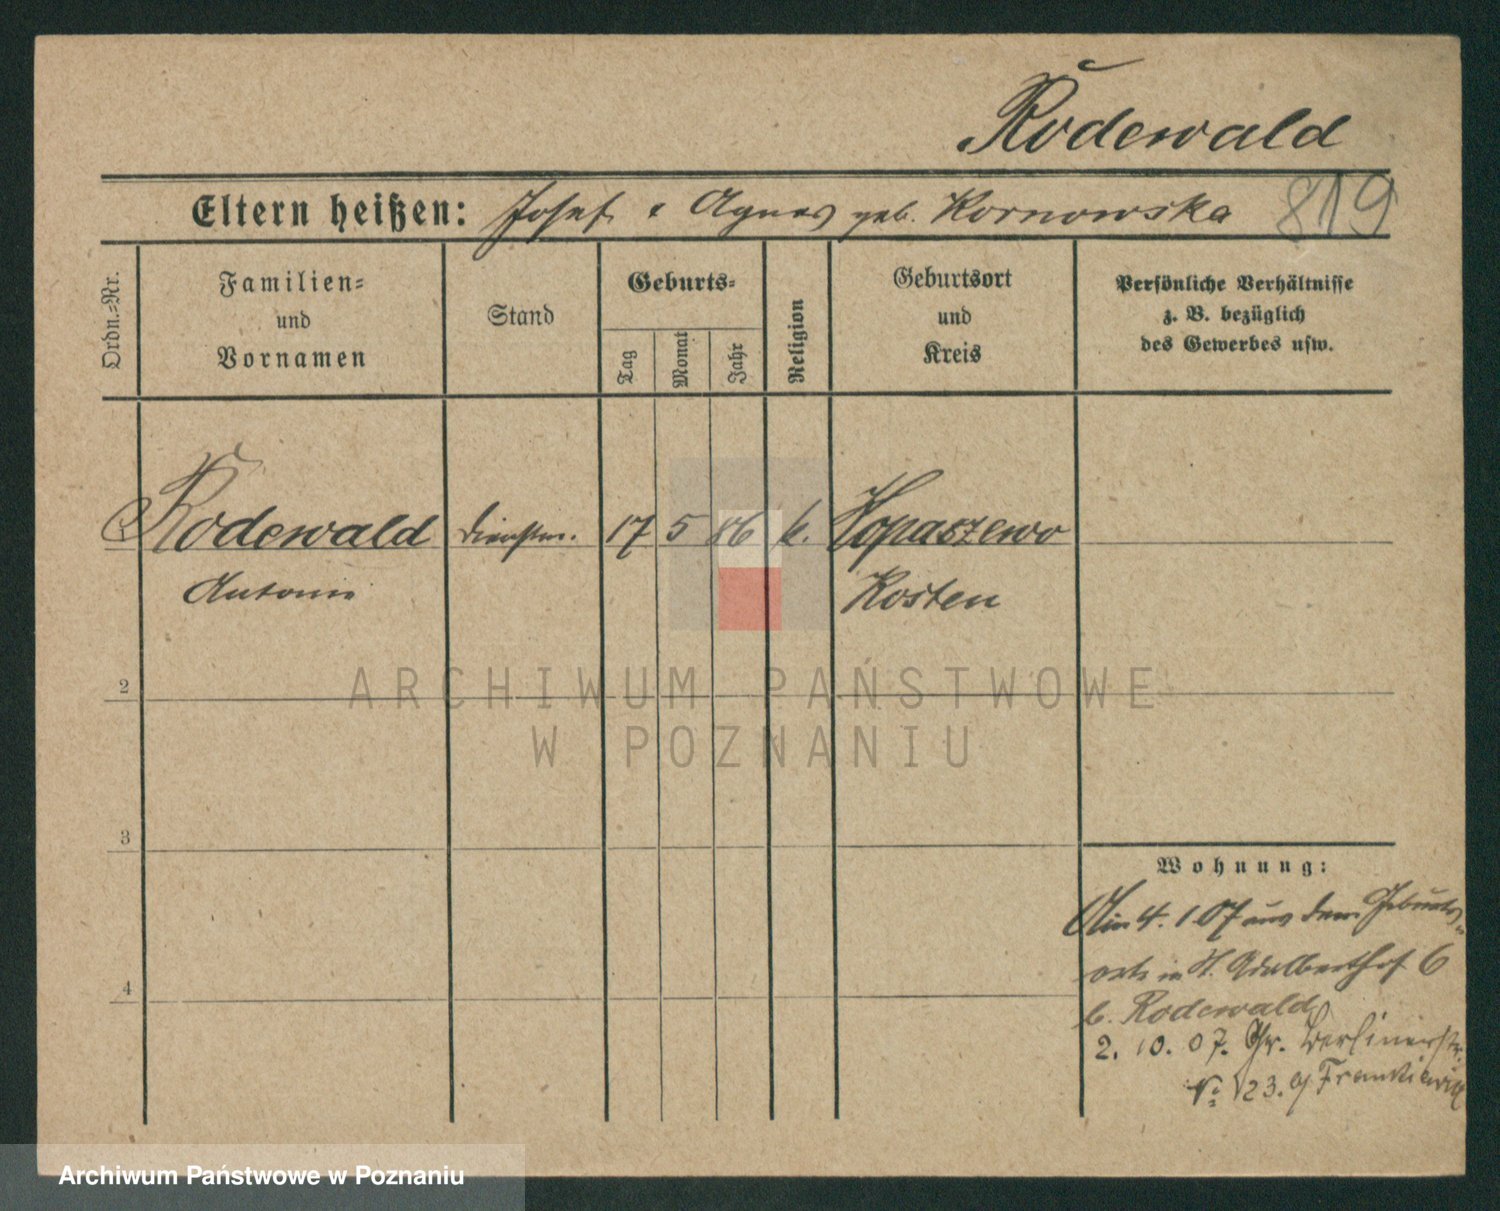 Rodewald
Eltern heißen: Josef u Agnes geb. Kornowska 819
Ordn.-Nr.
Familien-
und
Vornamen
Stand
Geburts-
Tag
Monat
Jahr
Religion
Geburtsort
und
Kreis
Persönliche Verhältnisse
z. B. bezüglich
des Gewerbes usw.
Rodewald Dienstm. 17 5 86 k. Kopaszewo
Antonie Kosten
2
3
4
Wohnung:
Am 4. 1 07 aus dem Geburts-
orte in St. Adalberthof 6
b. Rodewald
2. 10. 07. Gr. Berlinerstr.
No 123. Frankiewicz
ARCHIWUM PAŃSTWOWE
W POZNANIU
Archiwum Państwowe w Poznaniu